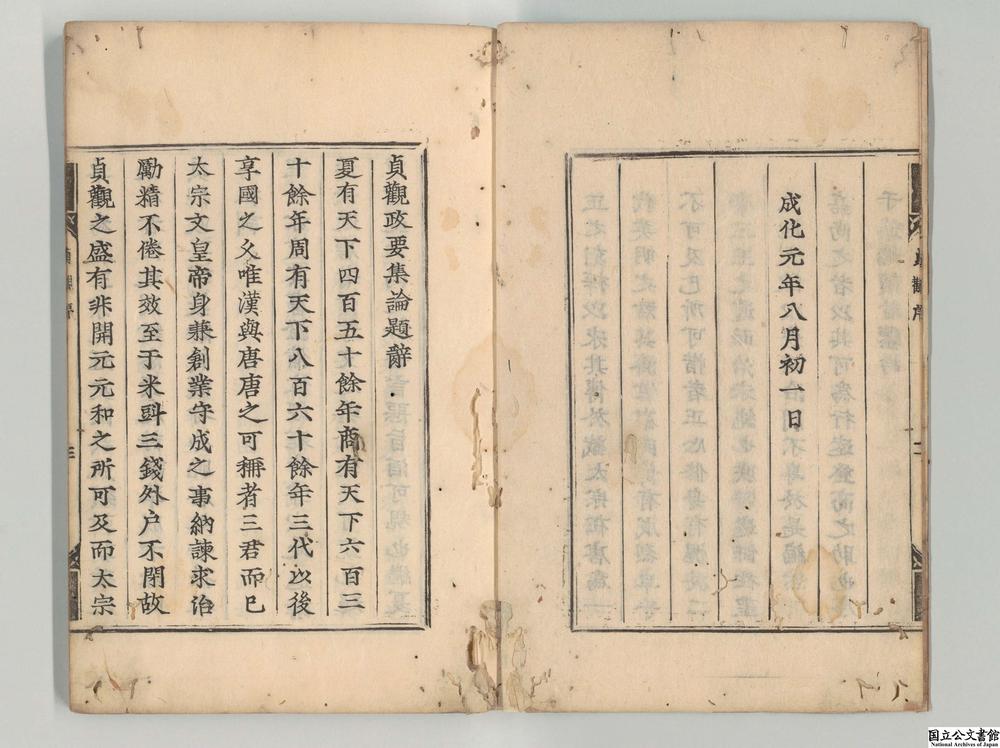 成化元年八月初一日
貞觀政要集論題辭
夏有天下四百五十餘年商有天下六百三
十餘年周有天下八百六十餘年三代以後
享國之久唯漢與唐唐之可稱者三君而已
太宗文皇帝身兼創業守成之事納諫求治
勵精不倦其效至于米㪷三錢外戶不閉故
貞觀之盛有非開元元和之所可及而太宗
国立公文書館
National Archives of Japan